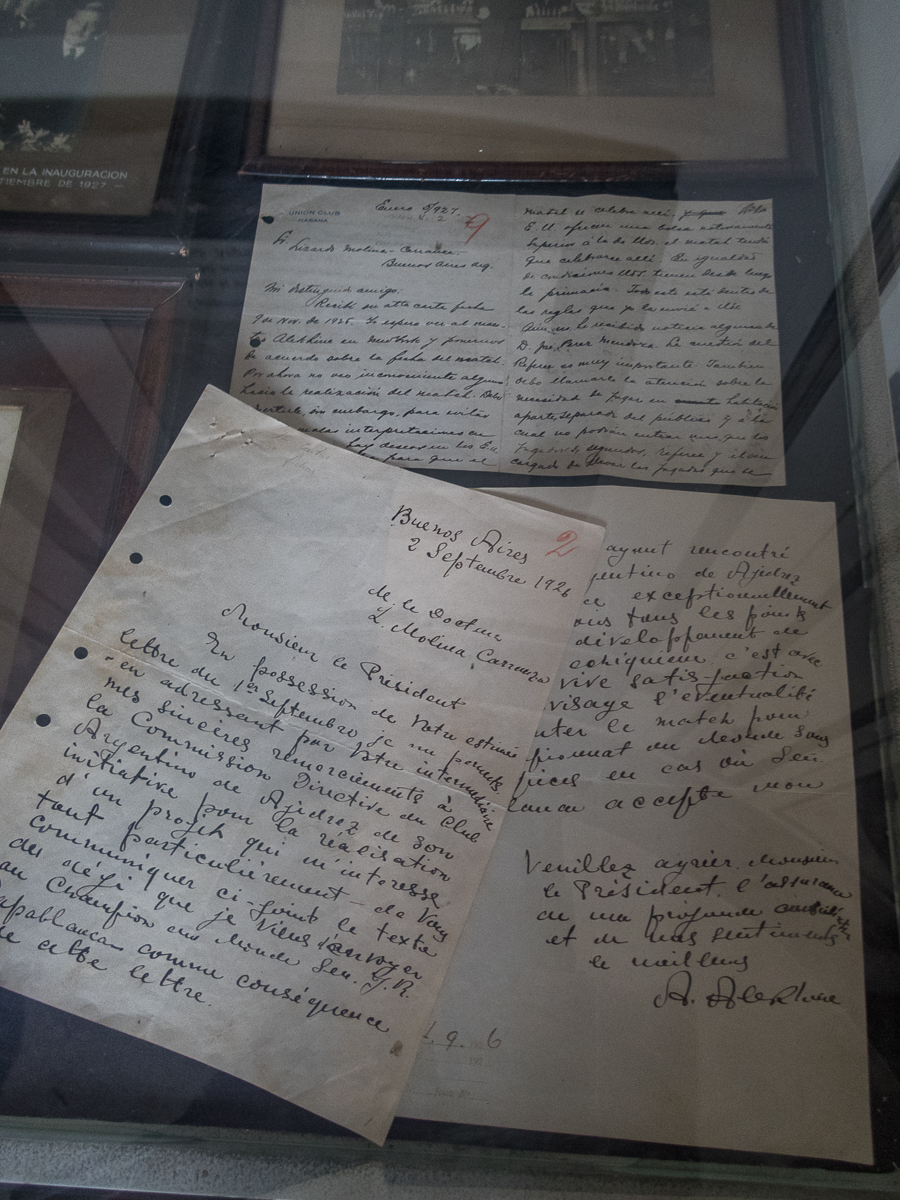 EN LA INAUGURACION
TIEMBRE DE 1927 —
UNION CLUB
HABANA
Enero 5/927.
9
Sr. Lizardo Molina - Carranza
Buenos Aires Arg.
Mi distinguido amigo:
Recibí su atta carta fecha
9 de Nov. de 1926. Yo espero ver al maes-
tro Alekhine en New York y ponernos
de acuerdo sobre la fecha del match.
Por ahora no veo inconveniente alguno
hacia la realización del match. Debo
vertirle, sin embargo, para evitar
malas interpretaciones en
hay deseos en los E.U.
para que el
match se celebre allí, y
E.U. ofrecen una bolsa
superior á la de Uds. el match tendrá
que celebrarse allí. En igualdad
de condiciones Uds. tienen desde luego
la primacía. Todo esto está dentro de
las reglas que ya le envié á Uds.
Aún no he recibido noticia alguna de
D. José Perez Mendoza. La cuestión del
Referee es muy importante. Tambien
debo llamarle la atención sobre la
necesidad de jugar en habitación
aparte, separada del público y á la
cual no podrán entrar más que los
jugadores, segundos, referee y el en-
cargado de llevar las jugadas que se
Buenos Aires
2
2 Septembre 1926
de le Docteur
L. Molina Carranza
Monsieur le Président
En possession de Votre estimée
lettre du 1er Septembre je me permets,
en adressant par Votre intermédiaire
mes sincères remerciements à
la Commission Directive du Club
Argentino de Ajedrez de son
initiative pour la réalisation
d'un projet qui m'intéresse
tout particulièrement – de Vous
communiquer ci-joint le texte
du défi que je viens d'envoyer
au Champion du Monde Señ. J. R.
Capablanca comme conséquence
de cette lettre.
ayant rencontré
gentino de Ajedrez
exceptionnellement
sous tous les points
développement de
échiquéen, c'est avec
vive satisfaction
visage l'éventualité
uter le match pour
pionnat du Monde sous
pices en cas où Señ
lanca accepte mon
Veuillez agréer, Monsieur
le Président, l'assurance
de ma profonde
et de mes sentiments
le meilleurs
A. Alekhine
9. 6